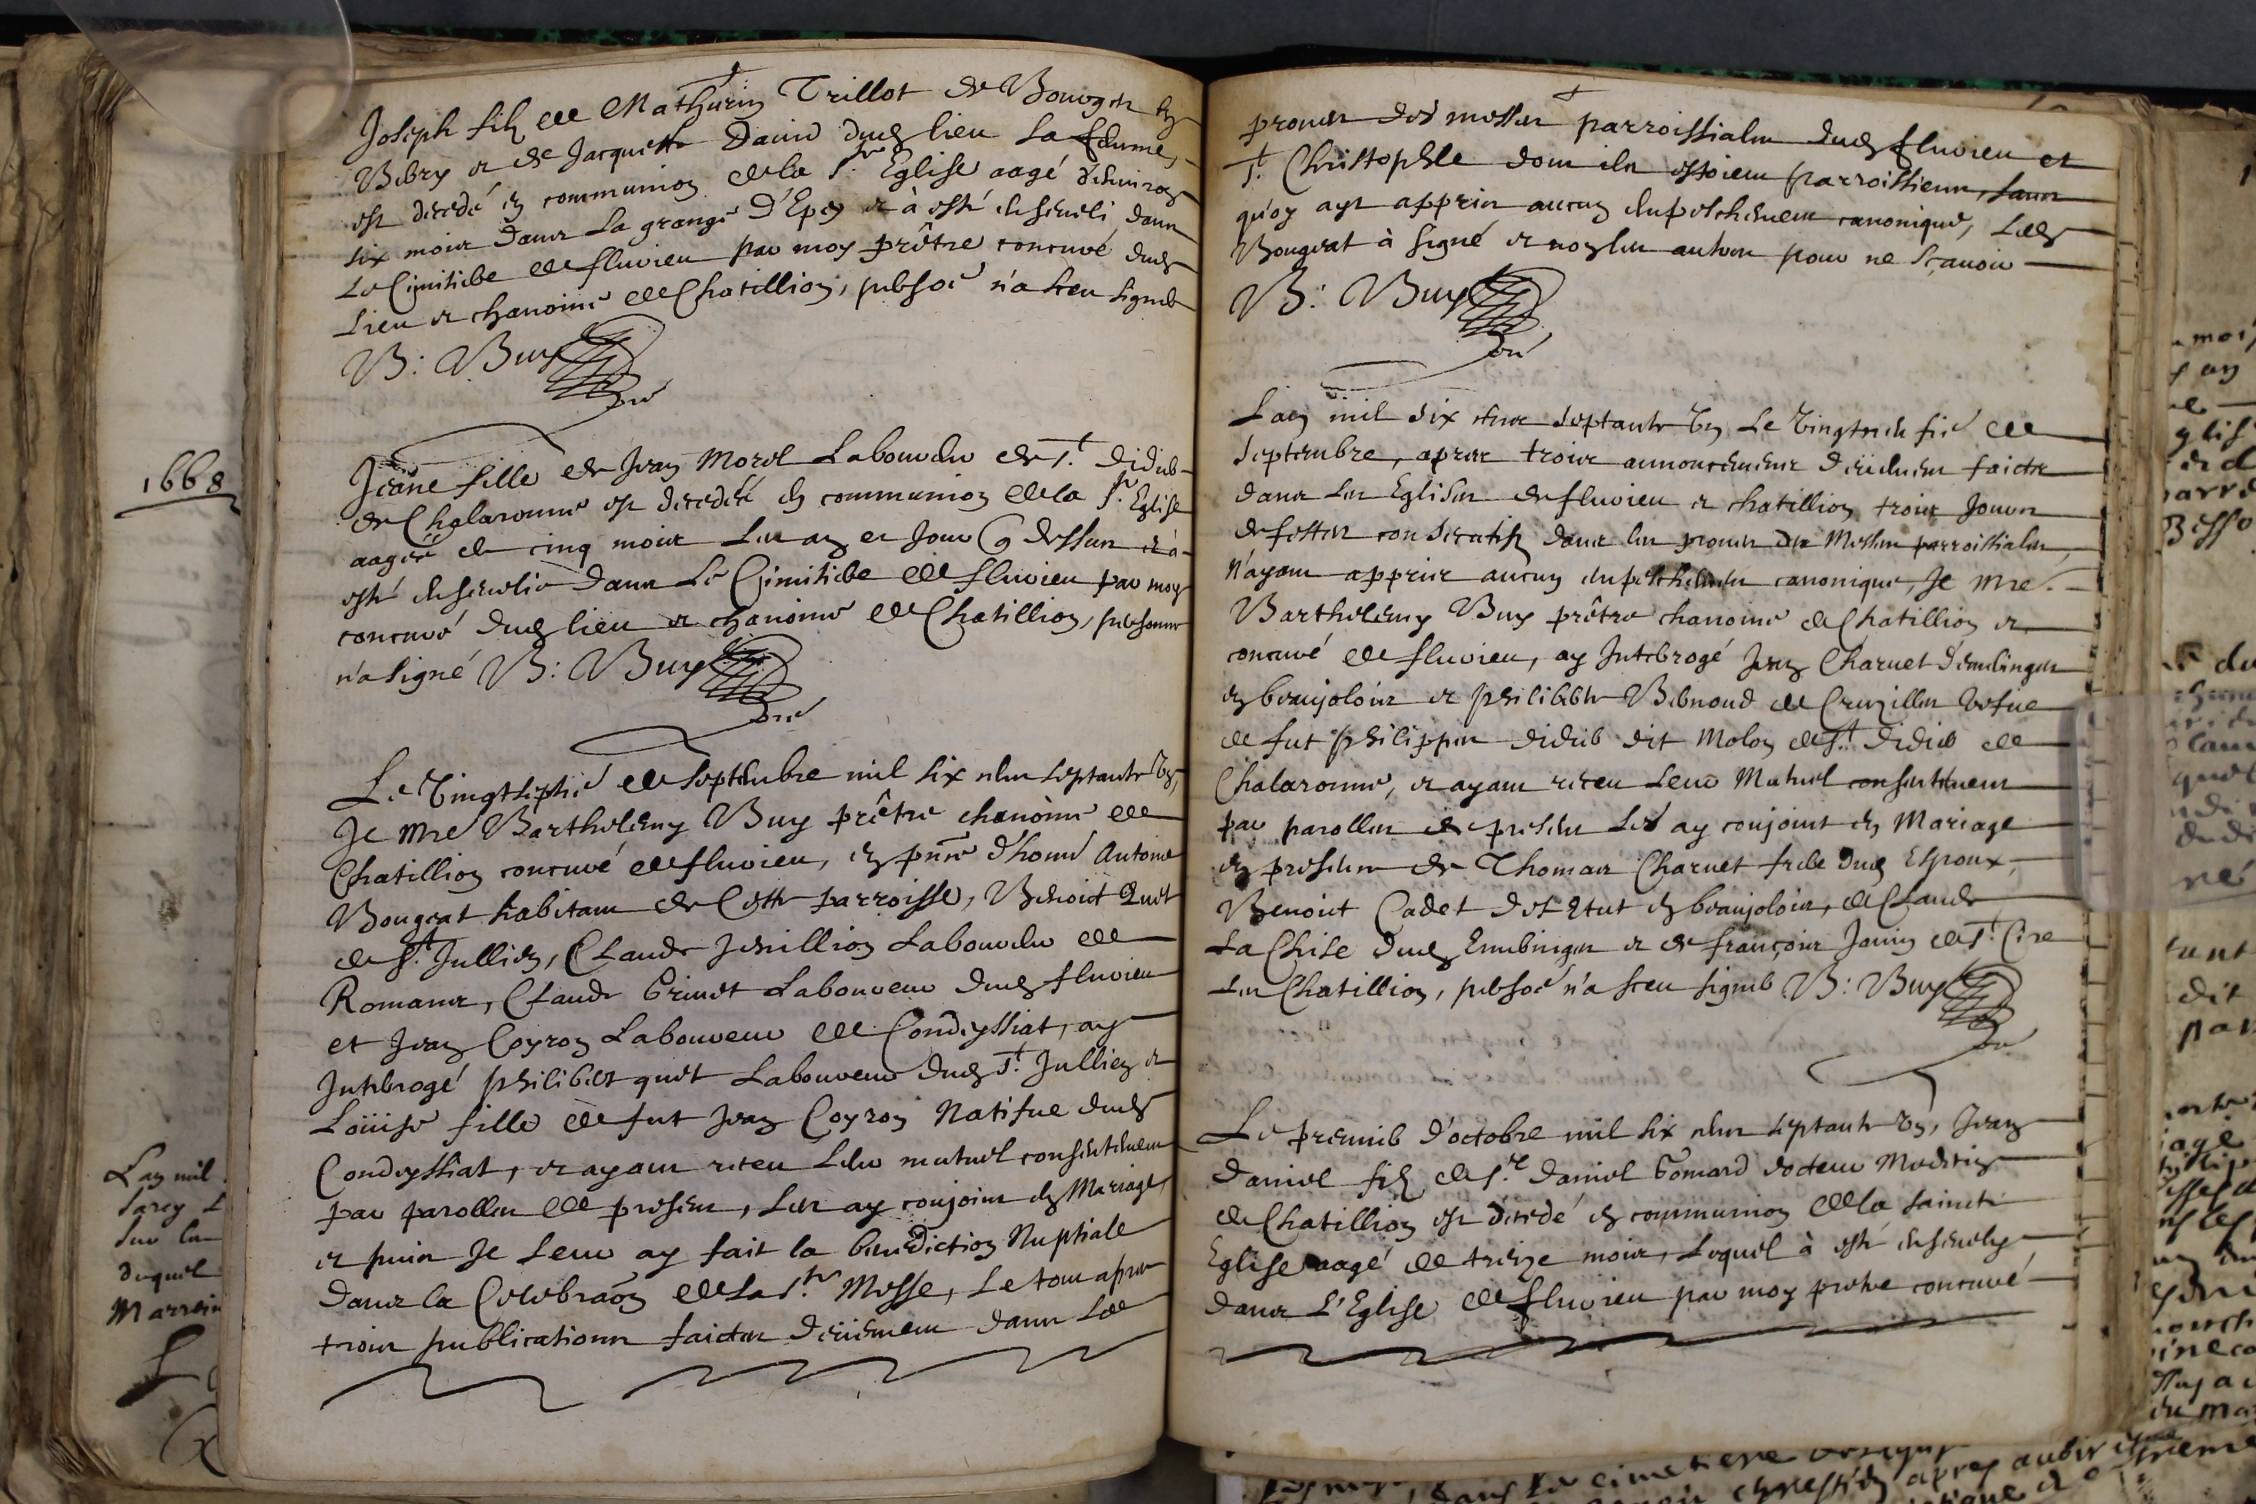 Joseph filz de Mathurin Trillot de Bourg en
et de Jacquette David dud lieu sa femme,
est decedé en communion de la Ste Eglise aagé denviron
six mois dans la grange d'Epey et à esté enseveli dans
Le Cimitiere de fluvieu par moy prêtre concuré dud
Lieu et chanoine de Chatillion, persoe n'a sceu signer
B: Buy
1668
Jeane fille de Jean Morel Laboureur de St Didier
de Chalaronne est decedée en communion de la Ste Eglise
aagée de cinq mois Les an et Jour cy dessus et à
esté ensevelie dans Le Cimitiere de fluvieu par moy
concuré dud lieu et chanoine de Chatillion, personne
n'a signé B: Buy
Le vingtseptie de septembre mil six cens septante un,
Je mre Barthelemy Buy prêtre chanoine de
Chatillion concuré de fluvieu, en pnce d'honn Antoine
Bougeat habitant de Cette parroisse, Benoict Quet
de St Jullien, Claude Jenillion Laboureur de
Romans, Claude Privet Laboureur dud fluvieu
et Jean Coyron Laboureur de Condeyssiat, ay
Interrogé philibert quet Laboureur dud St Jullien et
Loüise fille de fut Jean Coyron Natifve dud
Condeyssiat, et ayant receu Leur mutuel consentement
par parolles de present, Les ay conjoint en Mariage,
et puis Je Leur ay fait la benediction Nuptiale
dans la Celebraõn de La Ste Messe, Le tout apres
trois publications faictes deüement dans Les
prones des messes parroissiales dud fluvieu et
St Christophle dont ils estoient parroissiens, sans
qu'on aye appris aucun empeschement canonique, Led
Bougeat à signé et non les autres pour ne sçavoir
B: Buy
Lan mil six cens septante un Le vingt de
septembre, apres trois annoncemens deüement faicts
dans les Eglises de fluvieu et chatillion trois Jours
de festes consecutifs dans les prones des Messes parroissiales,
n'ayant appris aucun empeschement canonique, Je mre
Barthelemy Buy prêtre chanoine de Chatillion et
concuré de fluvieu, ay Interrogé Jean Charvet d'emeringes
en beaujolois et philiberte Bernoud de Cruzilles vefve
de fut philippes didier dit Molon de St didier de
Chalaronne, et ayant receu Leur Mutuel consentement
par parolles de presens Les ay conjoint en Mariage
en presence de Thomas Charvet frere dud Espoux,
Benoict Cadet de en beaujolois, de Claude
La Chise dud Emeringes et de françois Janin de St Cire
Les Chatillion, persoe n'a sceu signer B: Buy
Le premier d'octobre mil six cens septante un, Jean
daniel filz de Sr daniel Gomard docteur Medecin
de Chatillion est decedé en communion de la saincte
Eglise aagé de treize mois, Lequel à esté ensevely
dans L'Eglise de fluvieu par moy pretre concuré